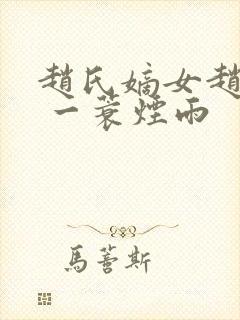 趙氏嫡女趙
一蓑煙雨
馬蓍斯